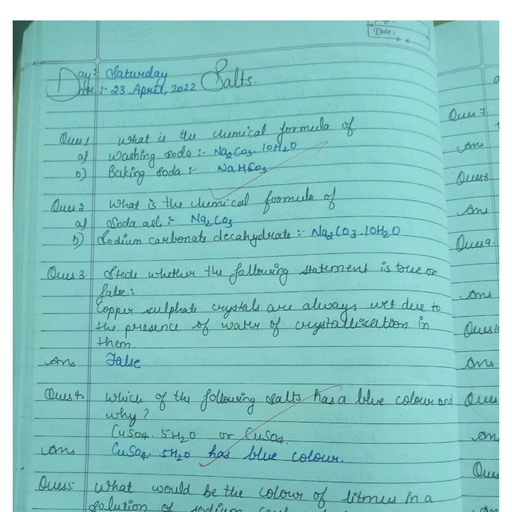 Date:
Day:- Saturday
Date:- 23 April, 2022
Salts.
Ques 1 What is the chemical formula of
a) Washing soda :- Na2CO3.10H2O
b) Baking soda :- NaHCO3
Ques 2 What is the chemical formula of
a) Soda ash :- Na2CO3
b) Sodium carbonate decahydrate :- Na2CO3.10H2O
Ques 3 State whether the following statement is true or
false:
Copper sulphate crystals are always wet due to
the presence of water of crystallisation in
them.
Ans False
Ques 4 Which of the following salts has a blue colour and
why?
CuSO4.5H2O or CuSO4.
Ans CuSO4.5H2O has blue colour.
Ques 5 What would be the colour of litmus in a
solution of sodium
Ques 7
Ans
Ques 8
Ans
Ques 9
Ans
Ques
Ans
Ques
Ans
Ques